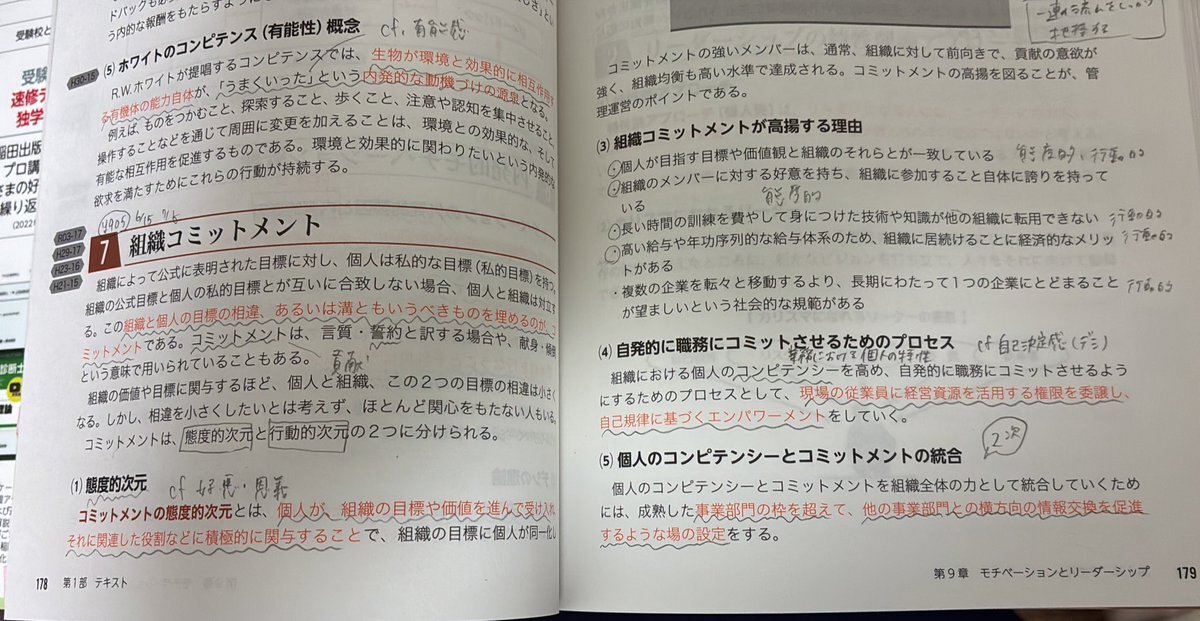 う内的な報酬をもたらすように
(5) ホワイトのコンピテンス(有能性)概念
cf. 有能感
H30-15
R.W.ホワイトが提唱するコンピテンスでは、生物が環境と効果的に相互作用す
る有機体の能力自体が、「うまくいった」という内発的な動機づけの源泉となる。
例えば、ものをつかむこと、探索すること、歩くこと、注意や認知を集中させること、
操作することなどを通じて周囲に変更を加えることは、環境との効果的な、そして
有能な相互作用を促進するものである。環境と効果的に関わりたいという内発的な
欲求を満たすためにこれらの行動が持続する。
R03-17
H29-17
H23-16
H21-15
7 組織コミットメント
組織によって公式に表明された目標に対し、個人は私的な目標(私的目標)を持つ。
組織の公式目標と個人の私的目標とが互いに合致しない場合、個人と組織は対立す
る。この組織と個人の目標の相違、あるいは溝ともいうべきものを埋めるのが、コ
ミットメントである。コミットメントは、言質・誓約と訳する場合や、献身・傾倒
という意味で用いられていることもある。
貢献
組織の価値や目標に関与するほど、個人と組織、この2つの目標の相違は小さく
なる。しかし、相違を小さくしたいとは考えず、ほとんど関心をもたない人もいる。
コミットメントは、態度的次元と行動的次元の2つに分けられる。
(1) 態度的次元
cf 好悪・恩義
コミットメントの態度的次元とは、個人が、組織の目標や価値を進んで受け入れ、
それに関連した役割などに積極的に関与することで、組織の目標に個人が同一化し
178 第1部 テキスト
コミットメントの強いメンバーは、通常、組織に対して前向きで、貢献の意欲が
強く、組織均衡も高い水準で達成される。コミットメントの高揚を図ることが、管
理運営のポイントである。
(3) 組織コミットメントが高揚する理由
・個人が目指す目標や価値観と組織のそれらとが一致している 態度的、行動的
・組織のメンバーに対する好意を持ち、組織に参加すること自体に誇りを持って
いる 態度的
・長い時間の訓練を費やして身につけた技術や知識が他の組織に転用できない 行動的
・高い給与や年功序列的な給与体系のため、組織に居続けることに経済的なメリッ 行動的
トがある
・複数の企業を転々と移動するより、長期にわたって1つの企業にとどまること 行動的
が望ましいという社会的な規範がある
(4) 自発的に職務にコミットさせるためのプロセス
cf 自己決定感(デシ)
業務における個人の特性
組織における個人のコンピテンシーを高め、自発的に職務にコミットさせるよう
にするためのプロセスとして、現場の従業員に経営資源を活用する権限を委譲し、
自己規律に基づくエンパワーメントをしていく。
2次
(5) 個人のコンピテンシーとコミットメントの統合
個人のコンピテンシーとコミットメントを組織全体の力として統合していくため
には、成熟した事業部門の枠を超えて、他の事業部門との横方向の情報交換を促進
するような場の設定をする。
第9章 モチベーションとリーダーシップ 179